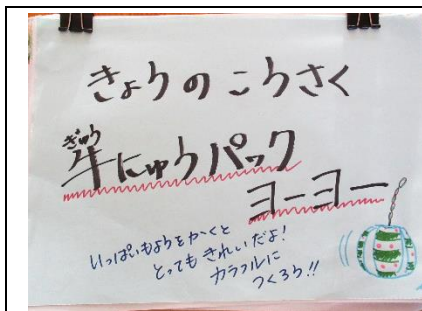 きょうのこうさく
ぎゅう
牛にゅうパック
ヨーヨー
いっぱいもようをかくと
とってもきれいだよ！
カラフルに
つくろう!!